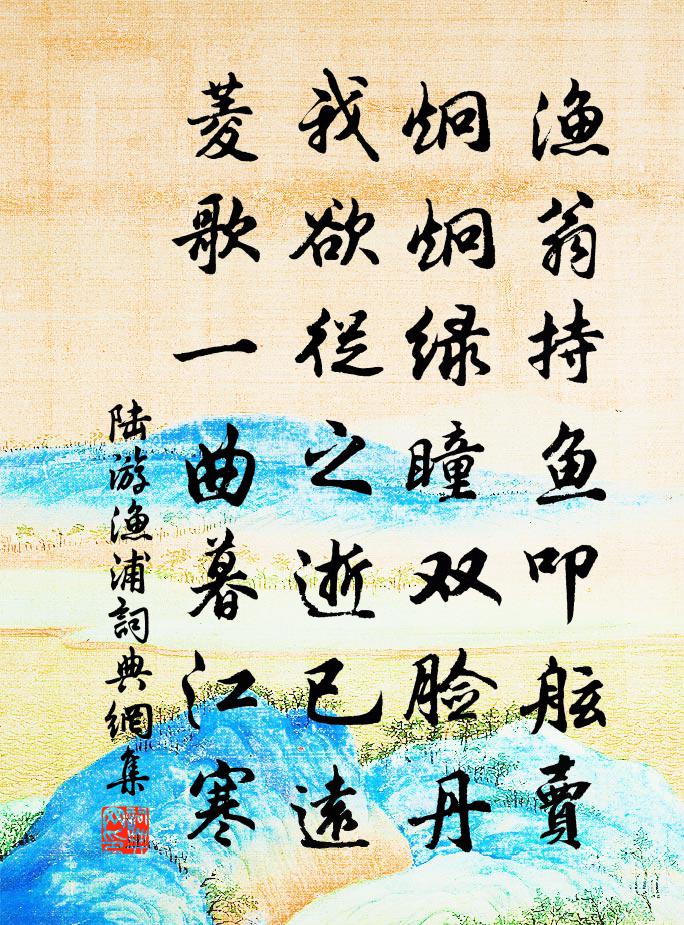 渔翁持鱼叩舷賣
炯炯绿瞳双脸丹
我欲從之逝已遠
菱歌一曲暮江寒
陆游渔浦詞典網集